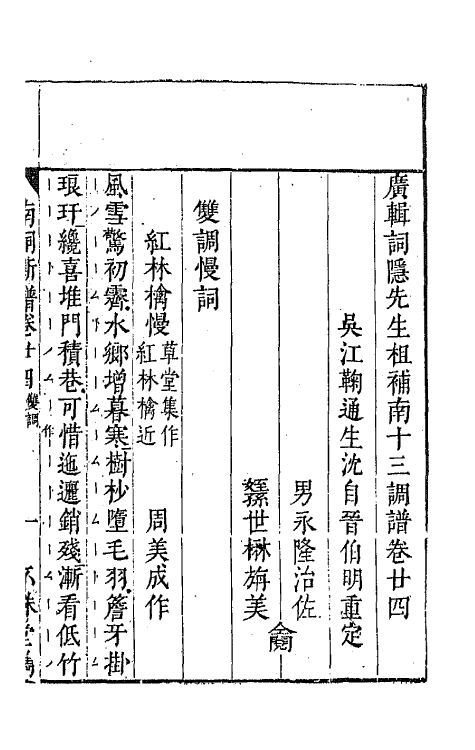 廣輯詞隱先生柤補南十三調譜卷廿四
吳江鞠通生沈自晉伯明重定
男永隆治佐
世楙旃美
雙調慢詞
紅林檎慢 草堂集作紅林檎近 周美成作
風雪驚初霽水鄉增暮寒樹杪墮毛羽簷牙掛
琅玕纔喜堆門積巷可惜迤邐銷殘漸看低竹
作
南詞新譜卷廿四 雙調 一 不殊堂